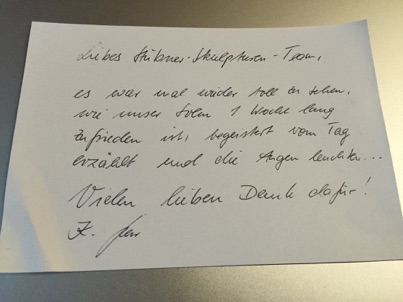 Liebes Stübner-Skulpturen-Team,
es war mal wieder toll zu sehen,
wie unser Sohn 1 Woche lang
zufrieden ist, begeistert vom Tag
erzählt und die Augen leuchten...
Vielen lieben Dank dafür!